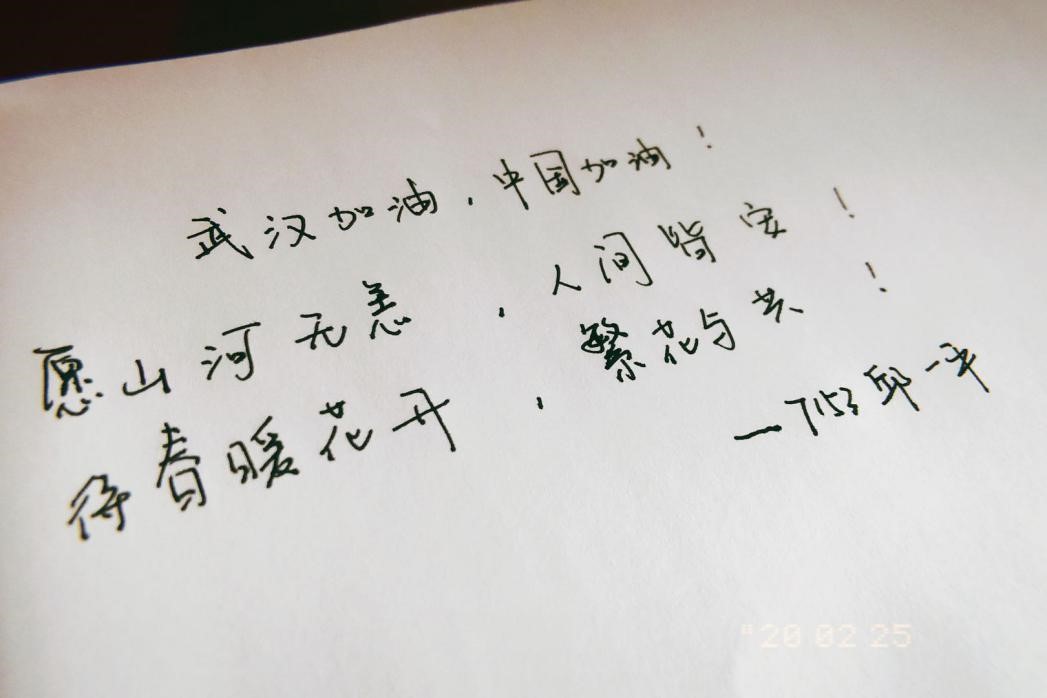 武汉加油，中国加油！
愿山河无恙，人间皆安！
待春暖花开，繁花与共！
—7153邱一平
"20 02 25